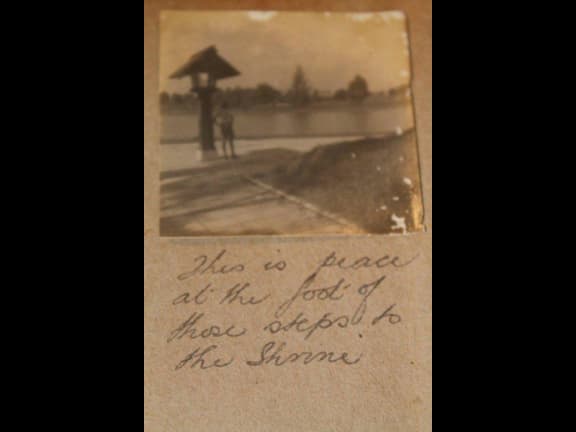 This is peace
at the foot of
those steps to
the Shrine